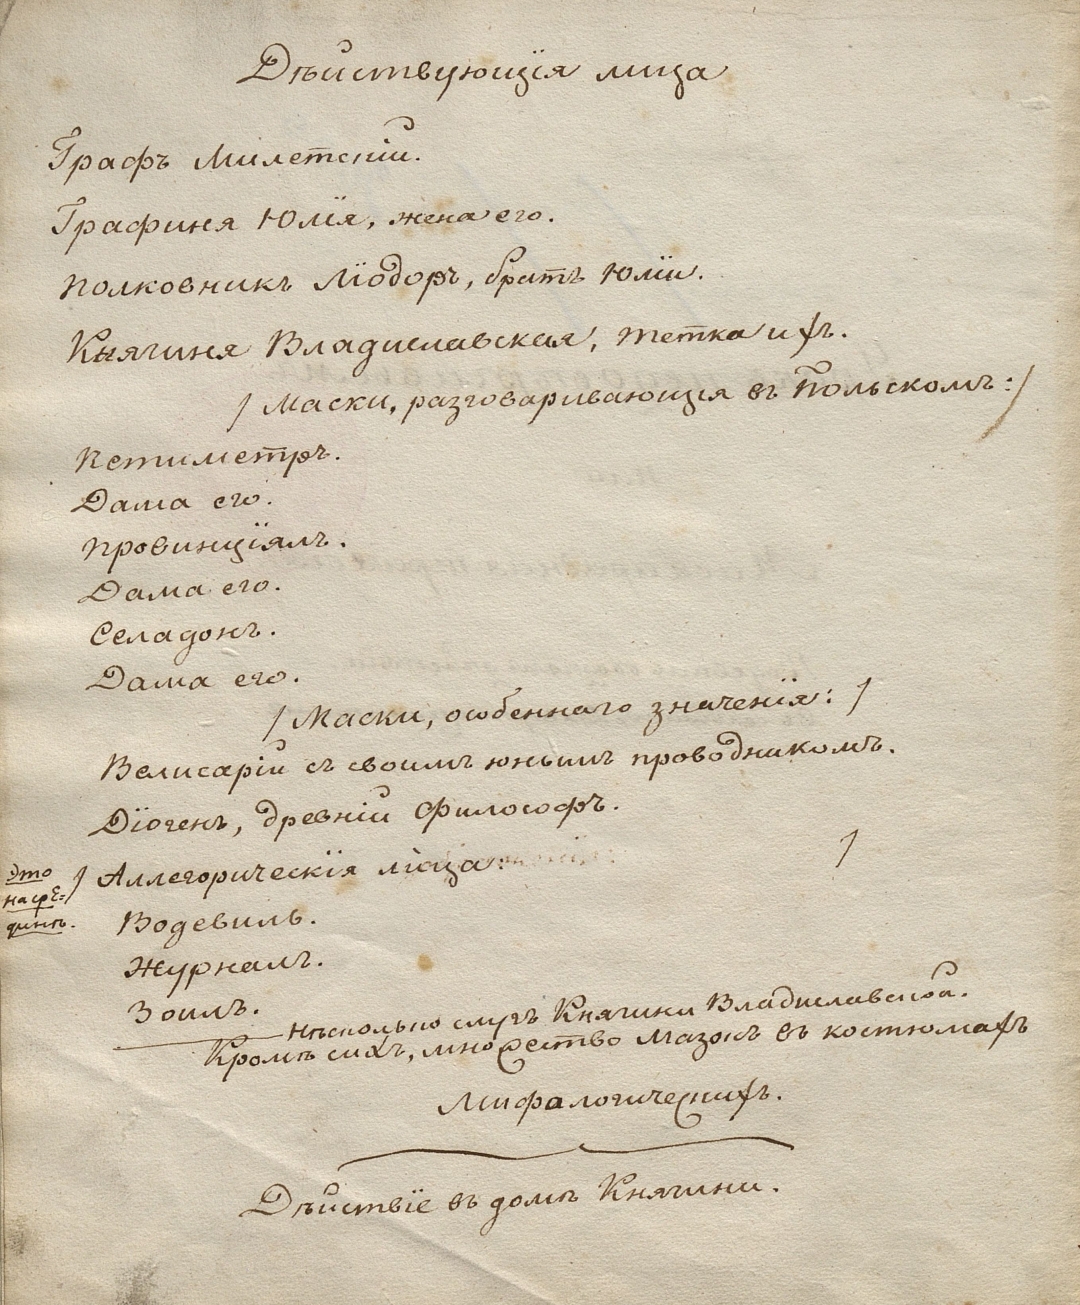 Дѣйствующія лица
Графъ Милетскій.
Графиня Юлія, жена его.
Полковникъ Ліодоръ, братъ Юліи.
Княгиня Владиславская, тетка ихъ.
/ Маски, разговаривающія въ Польскомъ: /
Петиметръ.
Дама его.
Провинціялъ.
Дама его.
Селадонъ.
Дама его.
/ Маски, особеннаго значенія: /
Велисарій съ своимъ юнымъ проводникомъ.
Діогенъ, древній Философъ.
/ Аллегорическія лица: /
Это
на срѣ-
динѣ.
Водевиль.
Журналъ.
Зоилъ.
Нѣсколько слугъ Княгини Владиславской.
Кромѣ сихъ, множество Масокъ въ костюмахъ
Мифалогическихъ.
Дѣйствіе въ домѣ Княгини.